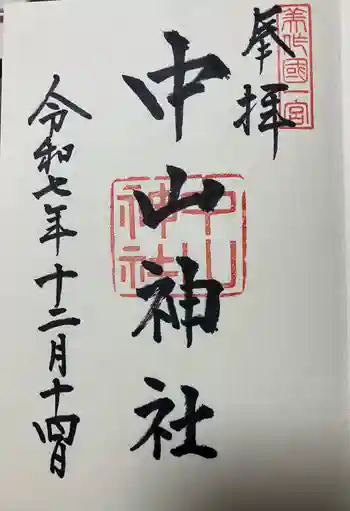 美作國一宮
奉拝
中山神社
中山神社
令和七年十二月十四日